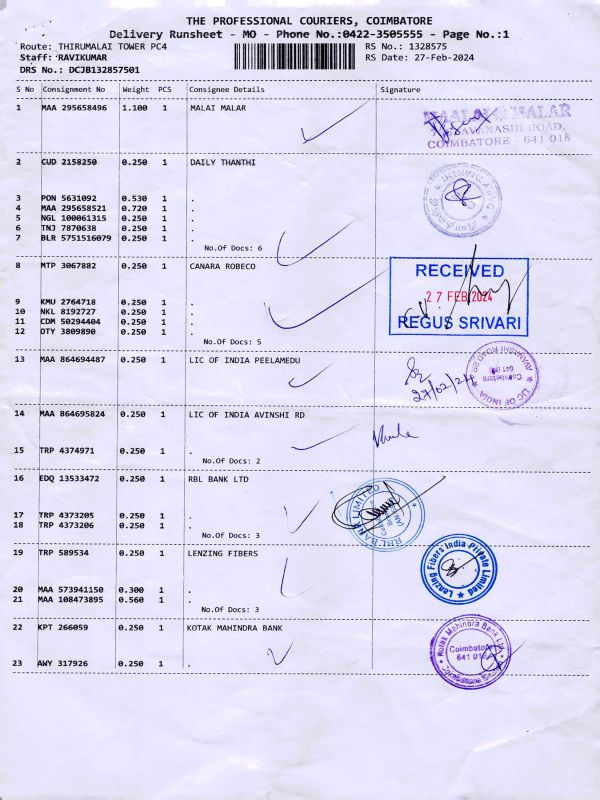 THE PROFESSIONAL COURIERS, COIMBATORE
Delivery Runsheet - MO - Phone No.:0422-3505555 - Page No.:1
Route: THIRUMALAI TOWER PC4 RS No.: 1328575
Staff: RAVIKUMAR RS Date: 27-Feb-2024
DRS No.: DCJB132857501
S No Consignment No Weight PCS Consignee Details Signature
1 MAA 295658496 1.100 1 MALAI MALAR
MAALAI MALAR
AVANASHI ROAD,
COIMBATORE - 641 018
2 CUD 2158250 0.250 1 DAILY THANTHI
3 PON 5631092 0.530 1 .
4 MAA 295658521 0.720 1 .
5 NGL 100061315 0.250 1 .
6 TNJ 7870638 0.250 1 .
7 BLR 5751516079 0.250 1 .
No.Of Docs: 6
8 MTP 3067882 0.250 1 CANARA ROBECO
RECEIVED
27 FEB 2024
REGUS SRIVARI
9 KMU 2764718 0.250 1 .
10 NKL 8192727 0.250 1 .
11 CDM 50294404 0.250 1 .
12 OTY 3809890 0.250 1 .
No.Of Docs: 5
13 MAA 864694487 0.250 1 LIC OF INDIA PEELAMEDU
27/02/24
LIC OF INDIA
AVANASHI ROAD BR
Coimbatore
14 MAA 864695824 0.250 1 LIC OF INDIA AVINSHI RD
15 TRP 4374971 0.250 1 .
No.Of Docs: 2
16 EDQ 13533472 0.250 1 RBL BANK LTD
RBL BANK LIMITED
17 TRP 4373205 0.250 1 .
18 TRP 4373206 0.250 1 .
No.Of Docs: 3
19 TRP 589534 0.250 1 LENZING FIBERS
Lenzing Fibers India Private Limited
20 MAA 573941150 0.300 1 .
21 MAA 108473895 0.560 1 .
No.Of Docs: 3
22 KPT 266059 0.250 1 KOTAK MAHINDRA BANK
Kotak Mahindra Bank Ltd
Coimbatore
641 018
23 AWY 317926 0.250 1 .